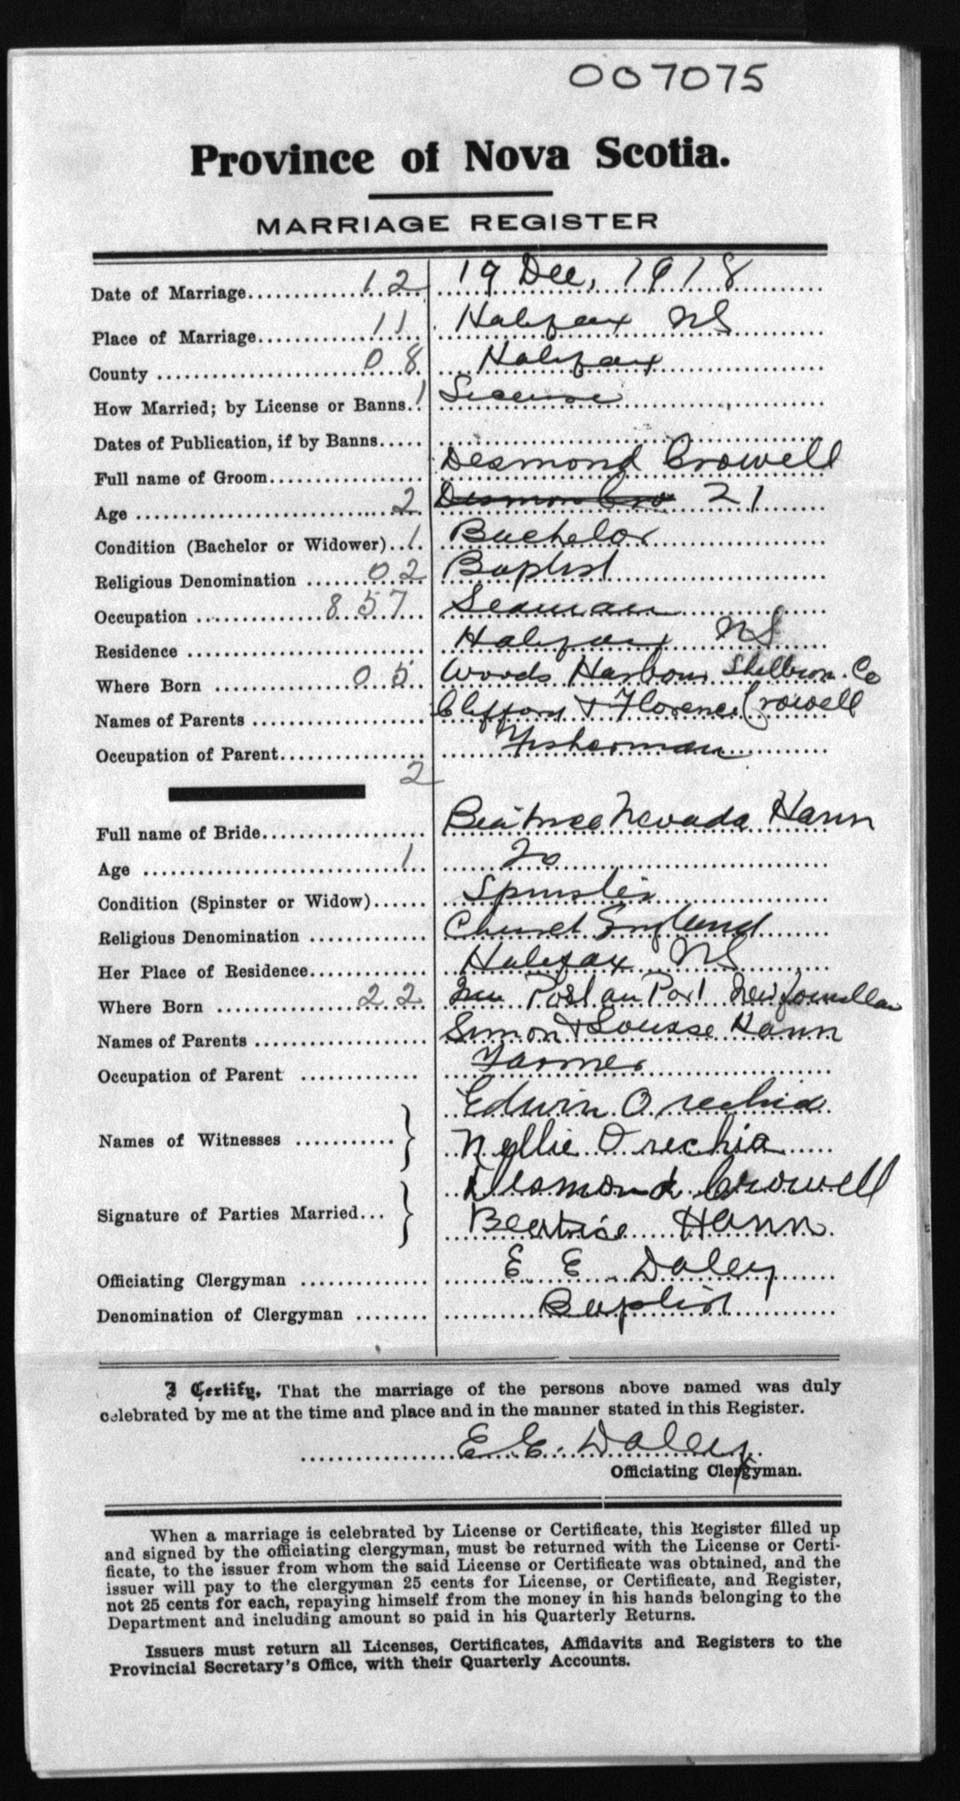 007075
Province of Nova Scotia.
MARRIAGE REGISTER
Date of Marriage 12 19 Dec, 1918
Place of Marriage 11 Halifax NS
County 08 Halifax
How Married; by License or Banns 1 License
Dates of Publication, if by Banns
Full name of Groom Desmond Crowell
Age 2 Desmon Cro 21
Condition (Bachelor or Widower) 1 Bachelor
Religious Denomination 02 Baptist
Occupation 857 Seaman
Residence Halifax NS
Where Born 05 Woods Harbour Shelburn Co
Names of Parents Clifford & Florence Crowell
Occupation of Parent Fisherman
2
Full name of Bride Beatrice Nevada Hann
Age 1 20
Condition (Spinster or Widow) Spinster
Religious Denomination Church England
Her Place of Residence Halifax NS
Where Born 22 Port au Port Newfoundlan
Names of Parents Simon & Louise Hann
Occupation of Parent Farmer
Edwin Orechia
Names of Witnesses } Nellie Orechia
Desmond Crowell
Signature of Parties Married... } Beatrice Hann
Officiating Clergyman E E Daley
Denomination of Clergyman Baptist
I Certify, That the marriage of the persons above named was duly
celebrated by me at the time and place and in the manner stated in this Register.
E. E. Daley
Officiating Clergyman.
When a marriage is celebrated by License or Certificate, this Register filled up
and signed by the officiating clergyman, must be returned with the License or Certi-
ficate, to the issuer from whom the said License or Certificate was obtained, and the
issuer will pay to the clergyman 25 cents for License, or Certificate, and Register,
not 25 cents for each, repaying himself from the money in his hands belonging to the
Department and including amount so paid in his Quarterly Returns.
Issuers must return all Licenses, Certificates, Affidavits and Registers to the
Provincial Secretary's Office, with their Quarterly Accounts.